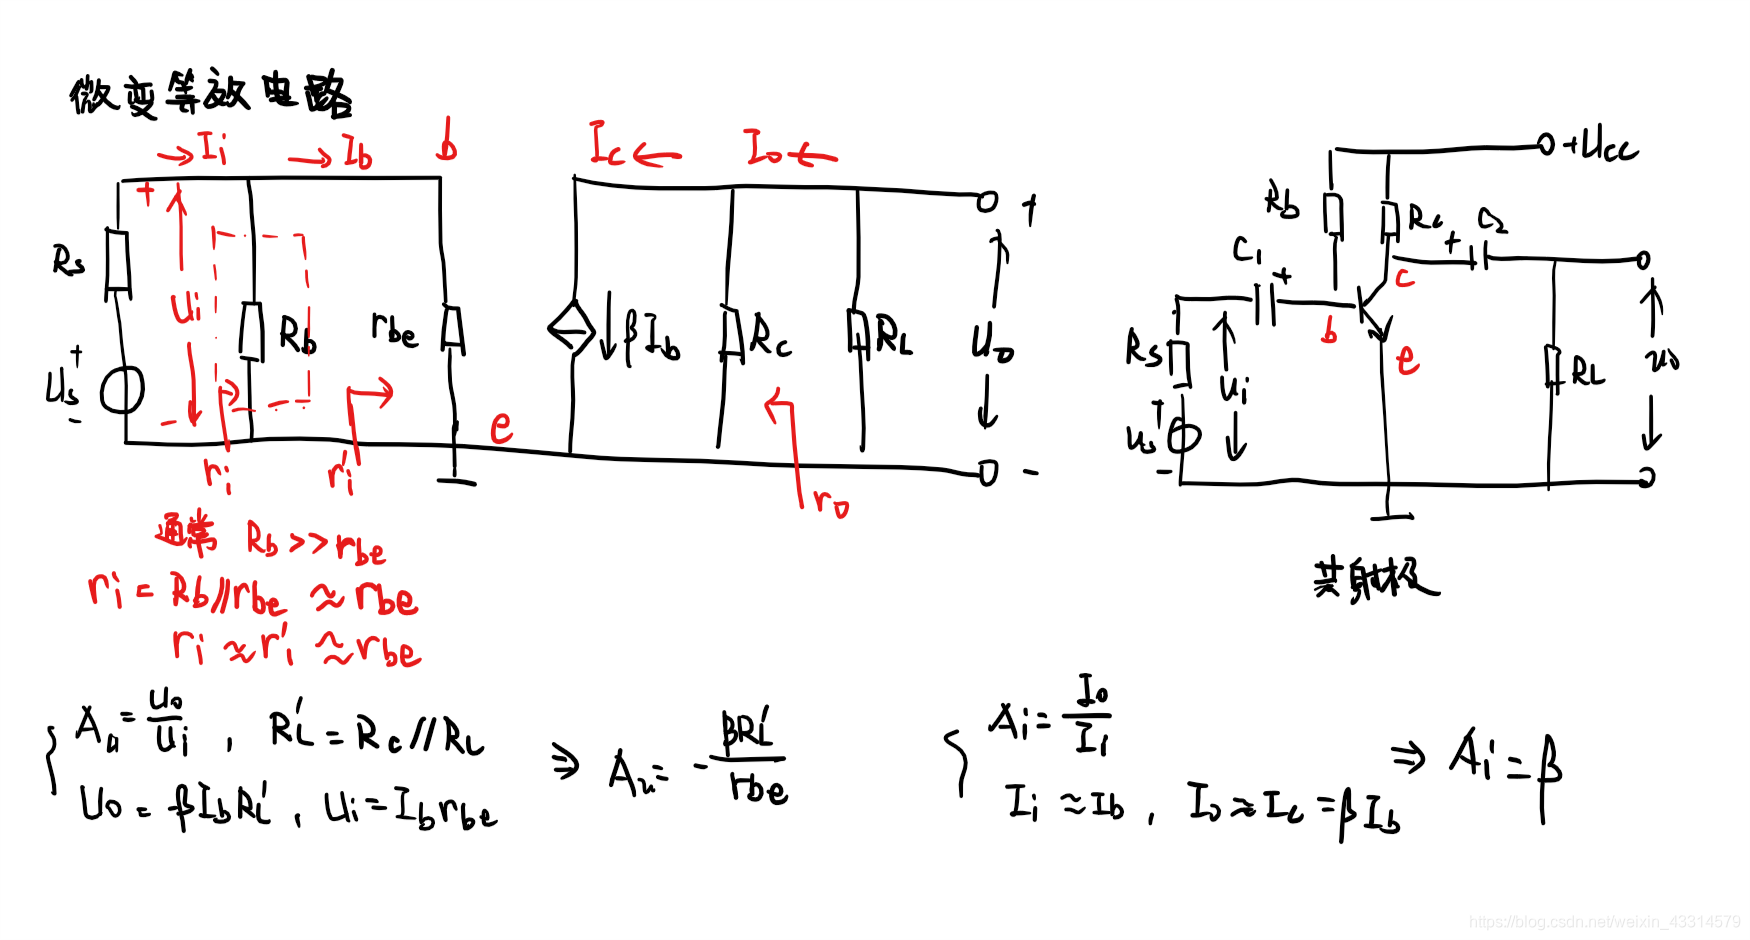 微变等放电路
Ii Ib b Ic Io
+ Ui -
Rs Rb rbe βIb Rc RL Uo + -
Us + -
e
ri ri' ro
通常 Rb>>rbe
ri = Rb//rbe ≈ rbe
ri ≈ ri' ≈ rbe
+Ucc
Rb Rc C2 +
C1 + c
b e
Rs ui RL uo
us + -
共射极
Au = uo/ui , RL' = Rc//RL
Uo = -βIbRL' , Ui = Ibrbe
⇒ Au = -βRL'/rbe
Ai = Io/Ii
Ii ≈ Ib , Io ≈ Ic = βIb
⇒ Ai = β
https://blog.csdn.net/weixin_43314579